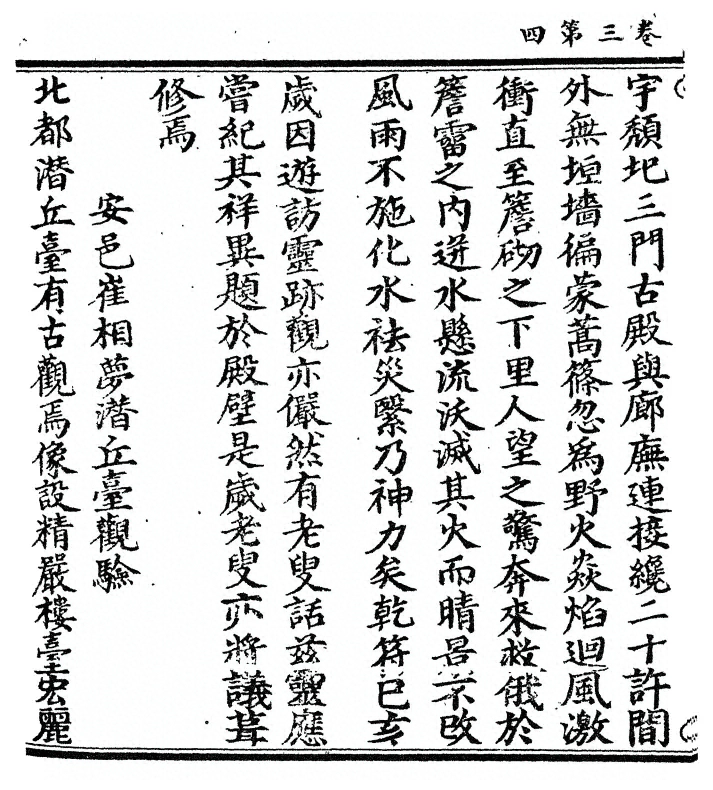 卷三第四
宇頹圮三門古殿與廊廡連接纔二十許間
外無垣墻徧蒙蒿篠忽為野火焱焰迴風激
衝直至簷砌之下里人望之驚奔來救俄於
簷霤之內迸水懸流沃滅其火而晴景不改
風雨不施化水袪災繄乃神力矣乾符巳亥
歲因遊訪靈跡觀亦儼然有老叟話茲靈應
嘗紀其祥異題於殿壁是歲老叟亦將議葺
修焉
安邑崔相夢潛丘臺觀驗
北都潛丘臺有古觀焉像設精嚴樓臺宏麗